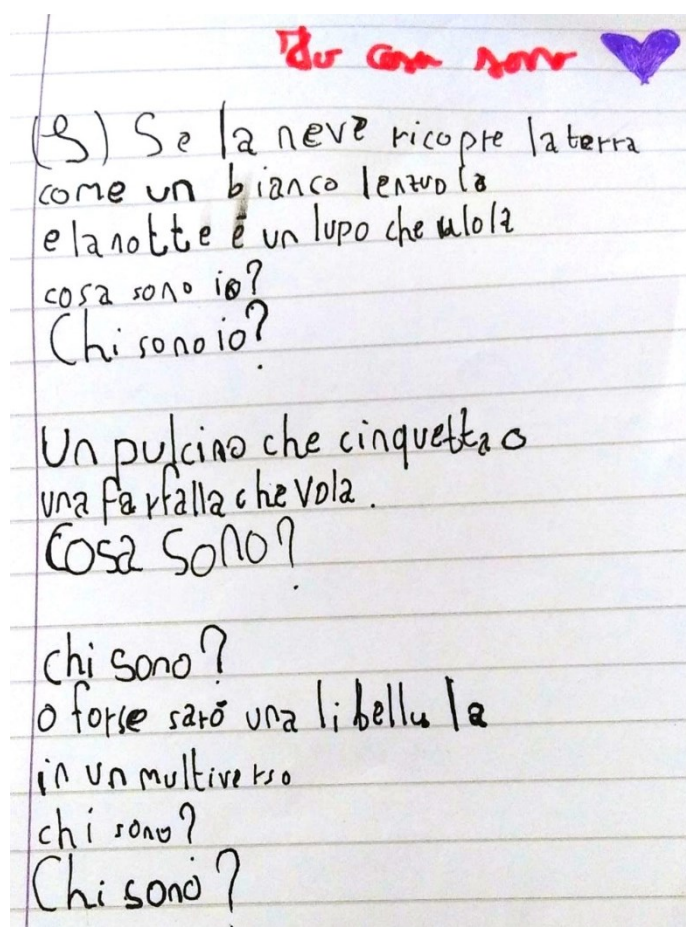 Io cosa sono
(S) Se la neve ricopre la terra
come un bianco lenzuola
e la notte è un lupo che ulola
cosa sono io?
Chi sono io?
Un pulcino che cinquetta o
una farfalla che vola.
Cosa sono?
chi sono?
o forse sarò una libellula
in un multiverso
chi sono?
Chi sono?